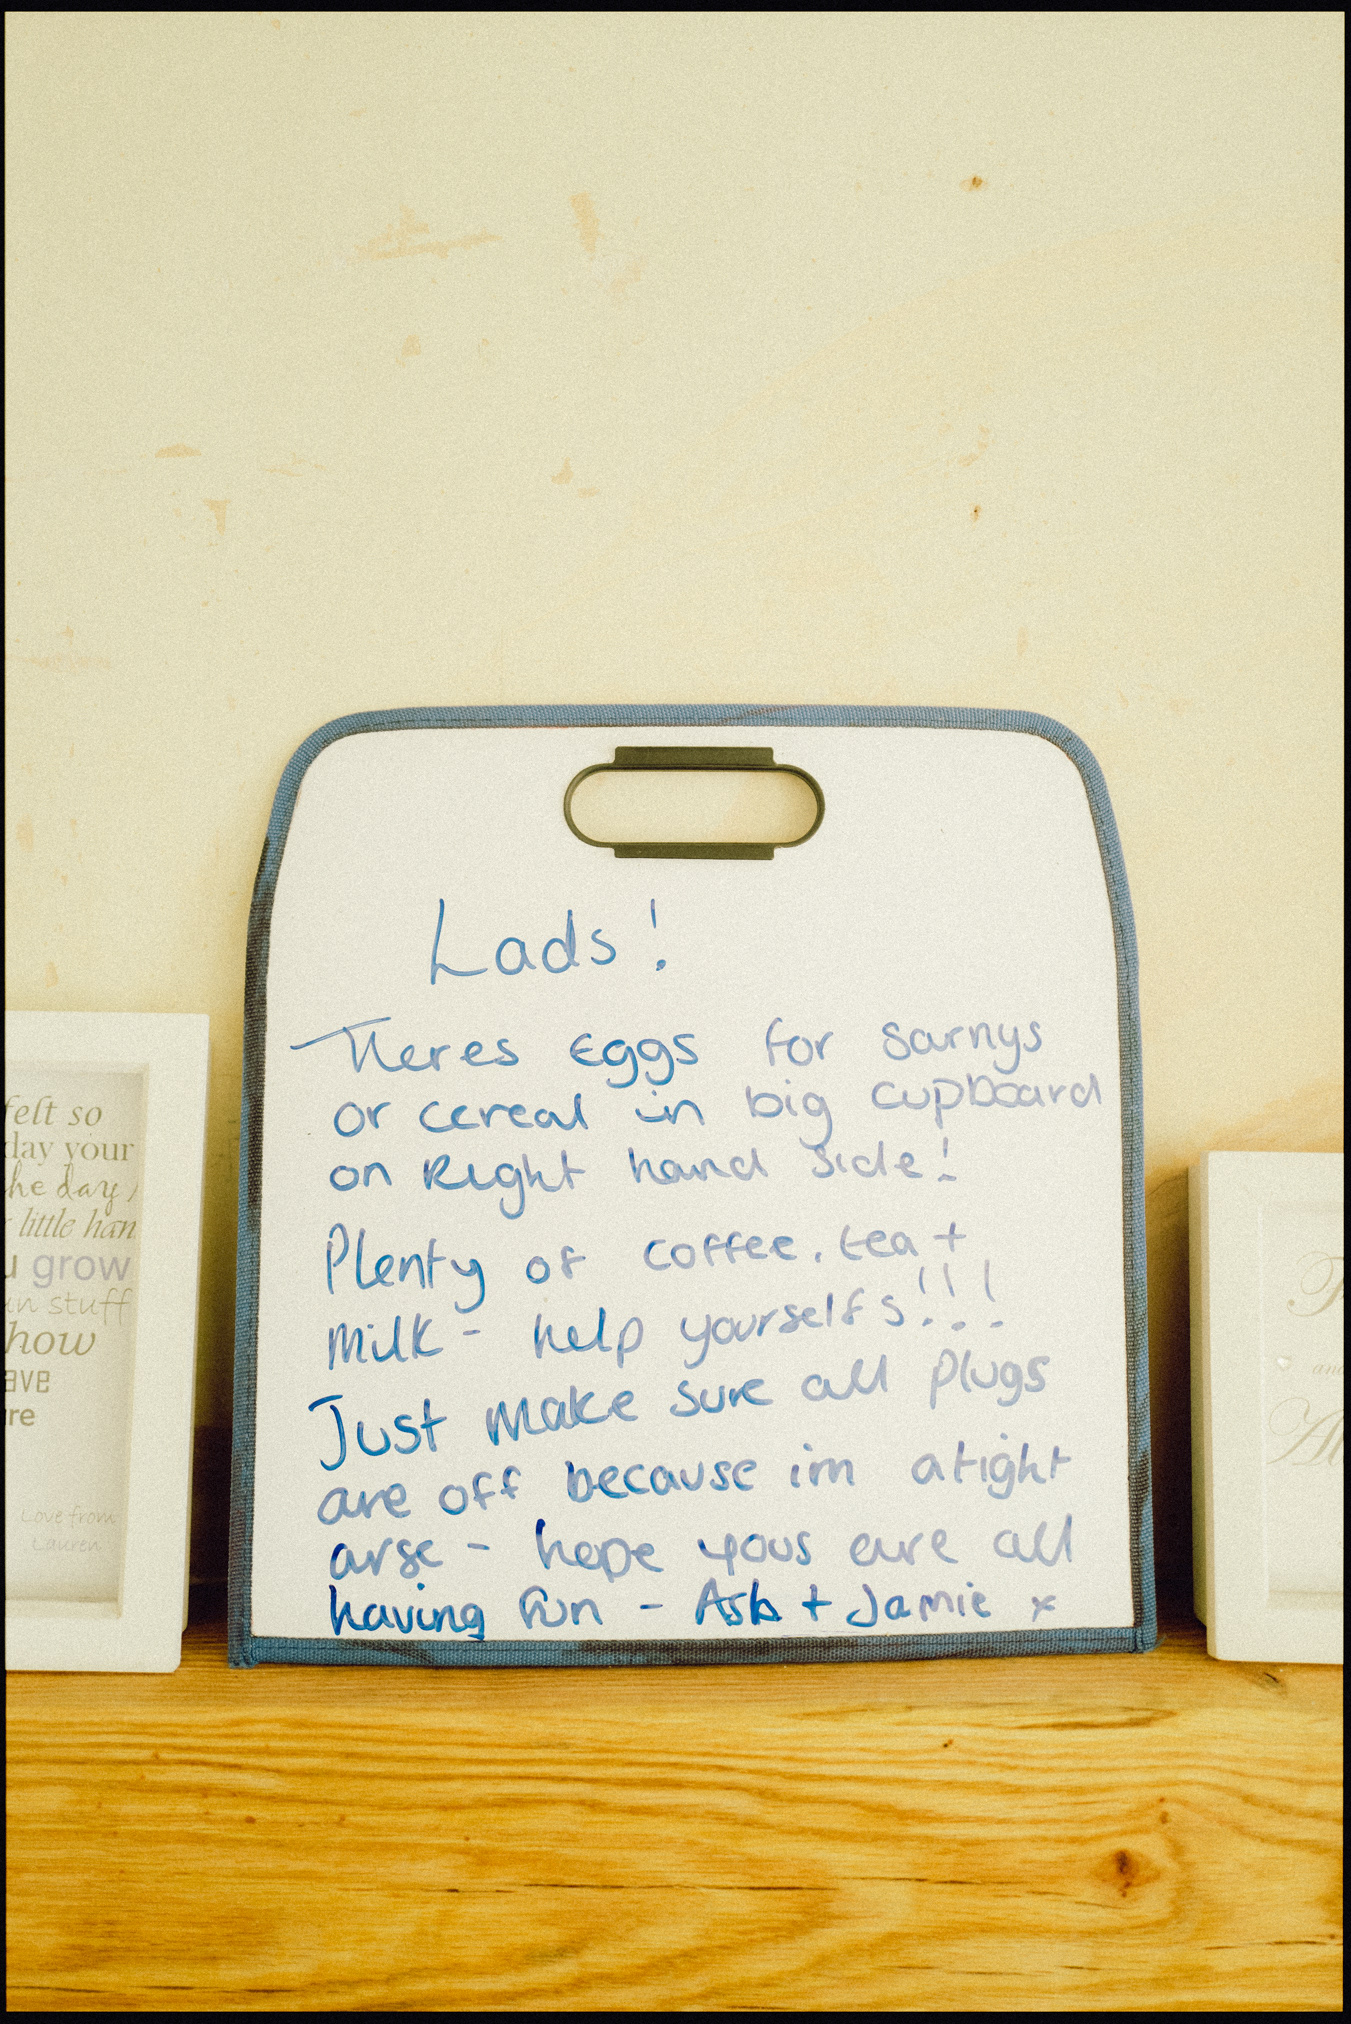 Lads!
Theres Eggs for sarnys
or cereal in big cupboard
on Right hand side!
Plenty of coffee, tea +
Milk - help yourselfs!!!
Just make sure all plugs
are off because im a tight
arse - hope yous are all
having fun - Ash + Jamie x
felt so
day your
the day
little han
u grow
un stuff
how
ave
re
Love from
Lauren
and